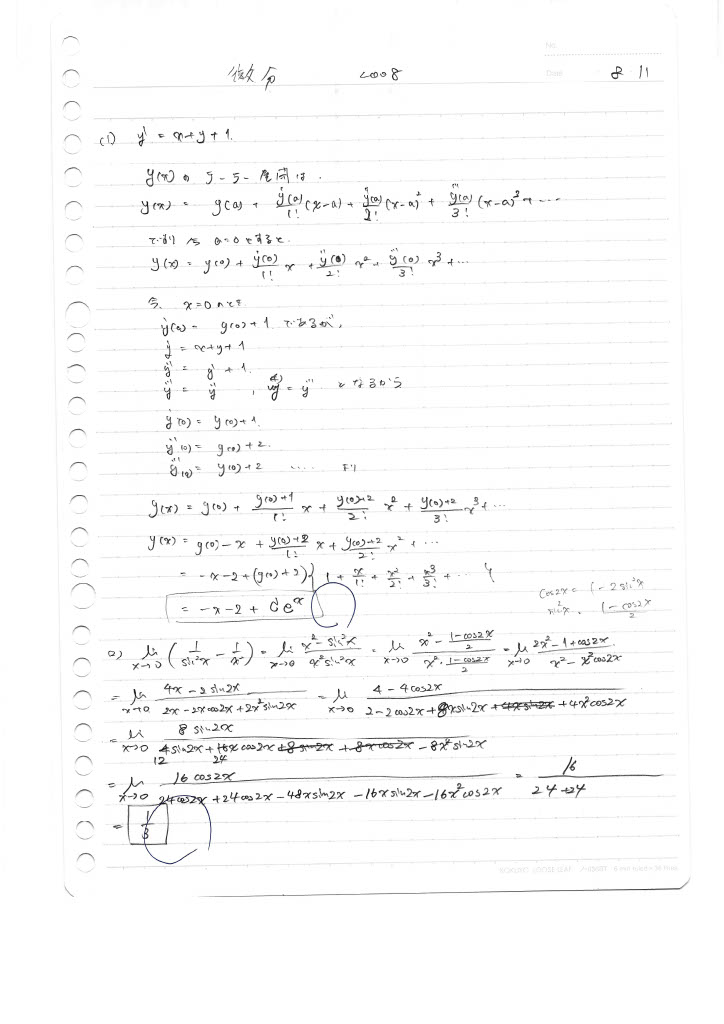 No.
微分 2008 Date 8 11
(1) y' = x+y+1.
y(x) の テーラー展開は.
y(x) = y(a) + ẏ(a)/1! (x-a) + ÿ(a)/2! (x-a)² + y⃛(a)/3! (x-a)³ + ...
a=0とすると.
y(x) = y(0) + ẏ(0)/1! x + ÿ(0)/2! x² + y⃛(0)/3! x³ + ...
今. x=0のとき
ẏ(0) = y(0)+1. であるが,
ẏ = x+y+1
ÿ = ẏ+1.
y⃛ = ÿ , y⁽⁴⁾ = y⃛ となるから
ẏ(0) = y(0)+1.
ÿ(0) = y(0)+2.
y⃛(0) = y(0)+2 ..... より
y(x) = y(0) + y(0)+1/1! x + y(0)+2/2! x² + y(0)+2/3! x³ + ...
y(x) = y(0) - x + y(0)+2/1! x + y(0)+2/2! x² + ...
= -x-2+(y(0)+2){1 + x/1! + x²/2! + x³/3! + ... }
= -x-2 + Ceˣ
cos2x = 1-2sin²x
sin²x = 1-cos2x/2
2) lim x→0 (1/sin²x - 1/x²) = lim x→0 x²-sin²x/x²sin²x = lim x→0 x² - 1-cos2x/2 / x²・1-cos2x/2 = lim x→0 2x²-1+cos2x/x²-x²cos2x
= lim x→0 4x-2sin2x/2x-2xcos2x+2x²sin2x = lim x→0 4-4cos2x/2-2cos2x+8xsin2x+4xsin2x+4x²cos2x
= lim x→0 8sin2x/4sin2x+16xcos2x+8sin2x+8xcos2x-8x²sin2x
12 24
= lim x→0 16cos2x/24cos2x+24cos2x-48xsin2x-16xsin2x-16x²cos2x = 16/24+24
= 1/3